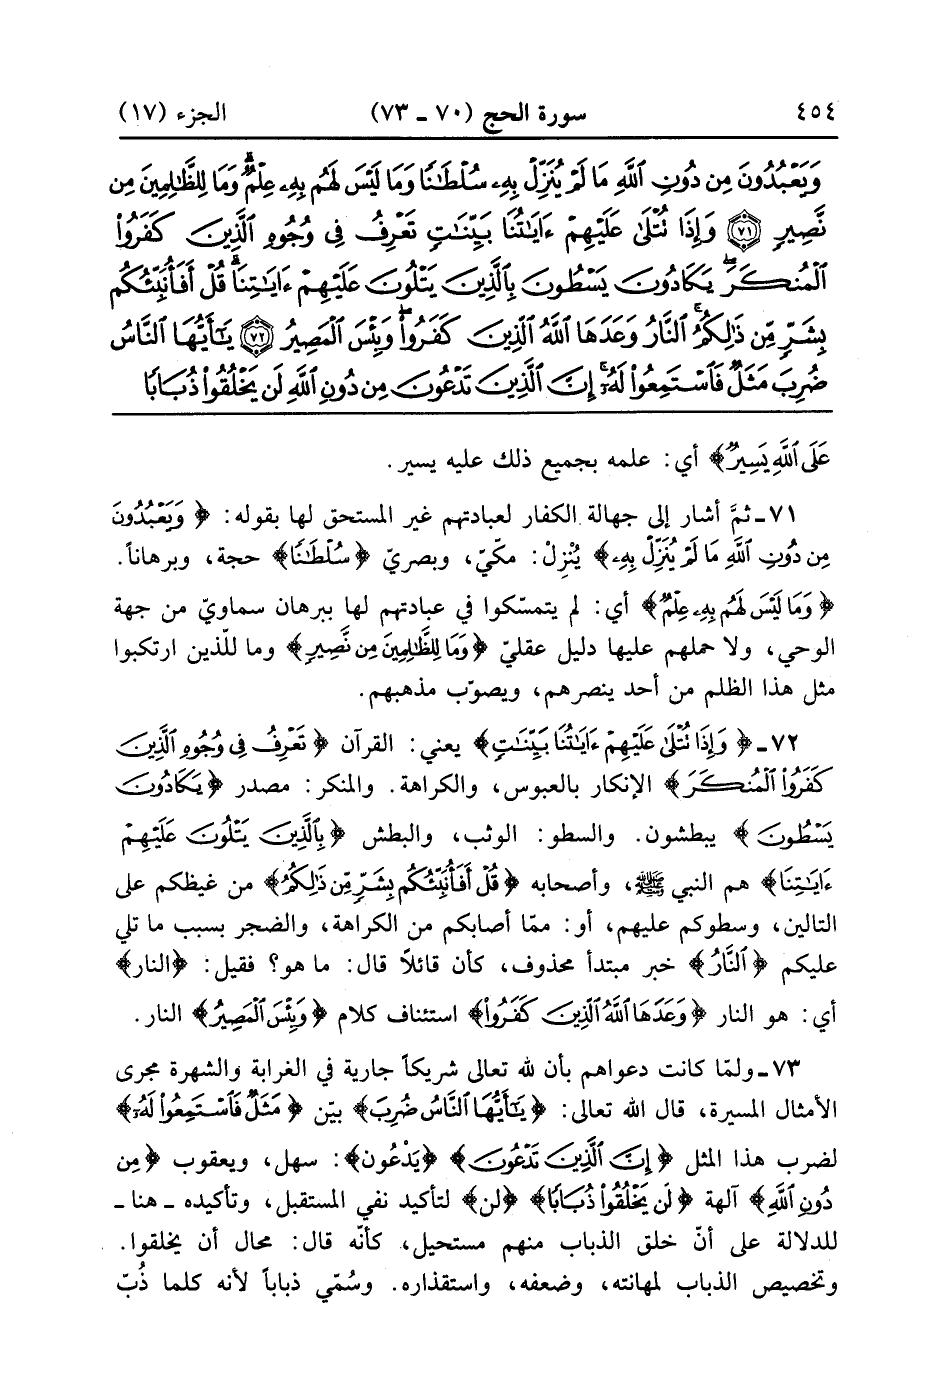 ٤٥٤ سورة الحج (٧٠ - ٧٣) الجزء (١٧)
وَيَعْبُدُونَ مِن دُونِ ٱللَّهِ مَا لَمْ يُنَزِّلْ بِهِۦ سُلْطَٰنًا وَمَا لَيْسَ لَهُم بِهِۦ عِلْمٌ ۗ وَمَا لِلظَّٰلِمِينَ مِن
نَّصِيرٍ ﴿٧١﴾ وَإِذَا تُتْلَىٰ عَلَيْهِمْ ءَايَٰتُنَا بَيِّنَٰتٍ تَعْرِفُ فِى وُجُوهِ ٱلَّذِينَ كَفَرُوا۟
ٱلْمُنكَرَ ۖ يَكَادُونَ يَسْطُونَ بِٱلَّذِينَ يَتْلُونَ عَلَيْهِمْ ءَايَٰتِنَا ۗ قُلْ أَفَأُنَبِّئُكُم
بِشَرٍّ مِّن ذَٰلِكُمُ ۚ ٱلنَّارُ وَعَدَهَا ٱللَّهُ ٱلَّذِينَ كَفَرُوا۟ ۖ وَبِئْسَ ٱلْمَصِيرُ ﴿٧٢﴾ يَٰٓأَيُّهَا ٱلنَّاسُ
ضُرِبَ مَثَلٌ فَٱسْتَمِعُوا۟ لَهُۥٓ ۚ إِنَّ ٱلَّذِينَ تَدْعُونَ مِن دُونِ ٱللَّهِ لَن يَخْلُقُوا۟ ذُبَابًا
عَلَى ٱللَّهِ يَسِيرٌ﴾ أي: علمه بجميع ذلك عليه يسير.
٧١ـ ثمَّ أشار إلى جهالة الكفار لعبادتهم غير المستحق لها بقوله: ﴿وَيَعْبُدُونَ
مِن دُونِ ٱللَّهِ مَا لَمْ يُنَزِّلْ بِهِۦ﴾ يُنْزِلْ: مكيّ، وبصريّ ﴿سُلْطَٰنًا﴾ حجة، وبرهاناً.
﴿وَمَا لَيْسَ لَهُم بِهِۦ عِلْمٌ﴾ أي: لم يتمسّكوا في عبادتهم لها ببرهان سماويّ من جهة
الوحي، ولا حملهم عليها دليل عقليّ ﴿وَمَا لِلظَّٰلِمِينَ مِن نَّصِيرٍ﴾ وما للّذين ارتكبوا
مثل هذا الظلم من أحد ينصرهم، ويصوّب مذهبهم.
٧٢ـ ﴿وَإِذَا تُتْلَىٰ عَلَيْهِمْ ءَايَٰتُنَا بَيِّنَٰتٍ﴾ يعني: القرآن ﴿تَعْرِفُ فِى وُجُوهِ ٱلَّذِينَ
كَفَرُوا۟ ٱلْمُنكَرَ﴾ الإنكار بالعبوس، والكراهة. والمنكر: مصدر ﴿يَكَادُونَ
يَسْطُونَ﴾ يبطشون. والسطو: الوثب، والبطش ﴿بِٱلَّذِينَ يَتْلُونَ عَلَيْهِمْ
ءَايَٰتِنَا﴾ هم النبي ﷺ، وأصحابه ﴿قُلْ أَفَأُنَبِّئُكُم بِشَرٍّ مِّن ذَٰلِكُمُ﴾ من غيظكم على
التالين، وسطوكم عليهم، أو: ممّا أصابكم من الكراهة، والضجر بسبب ما تلي
عليكم ﴿ٱلنَّارُ﴾ خبر مبتدأ محذوف، كأن قائلاً قال: ما هو؟ فقيل: ﴿النار﴾
أي: هو النار ﴿وَعَدَهَا ٱللَّهُ ٱلَّذِينَ كَفَرُوا۟﴾ استئناف كلام ﴿وَبِئْسَ ٱلْمَصِيرُ﴾ النار.
٧٣ـ ولمّا كانت دعواهم بأن لله تعالى شريكاً جارية في الغرابة والشهرة مجرى
الأمثال المسيرة، قال الله تعالى: ﴿يَٰٓأَيُّهَا ٱلنَّاسُ ضُرِبَ﴾ بيّن ﴿مَثَلٌ فَٱسْتَمِعُوا۟ لَهُۥٓ﴾
لضرب هذا المثل ﴿إِنَّ ٱلَّذِينَ تَدْعُونَ﴾ ﴿يَدْعُون﴾: سهل، ويعقوب ﴿مِن
دُونِ ٱللَّهِ﴾ آلهة ﴿لَن يَخْلُقُوا۟ ذُبَابًا﴾ ﴿لن﴾ لتأكيد نفي المستقبل، وتأكيده ـ هنا ـ
للدلالة على أنّ خلق الذباب منهم مستحيل، كأنّه قال: محال أن يخلقوا.
وتخصيص الذباب لمهانته، وضعفه، واستقذاره. وسُمّي ذباباً لأنه كلما ذُبّ